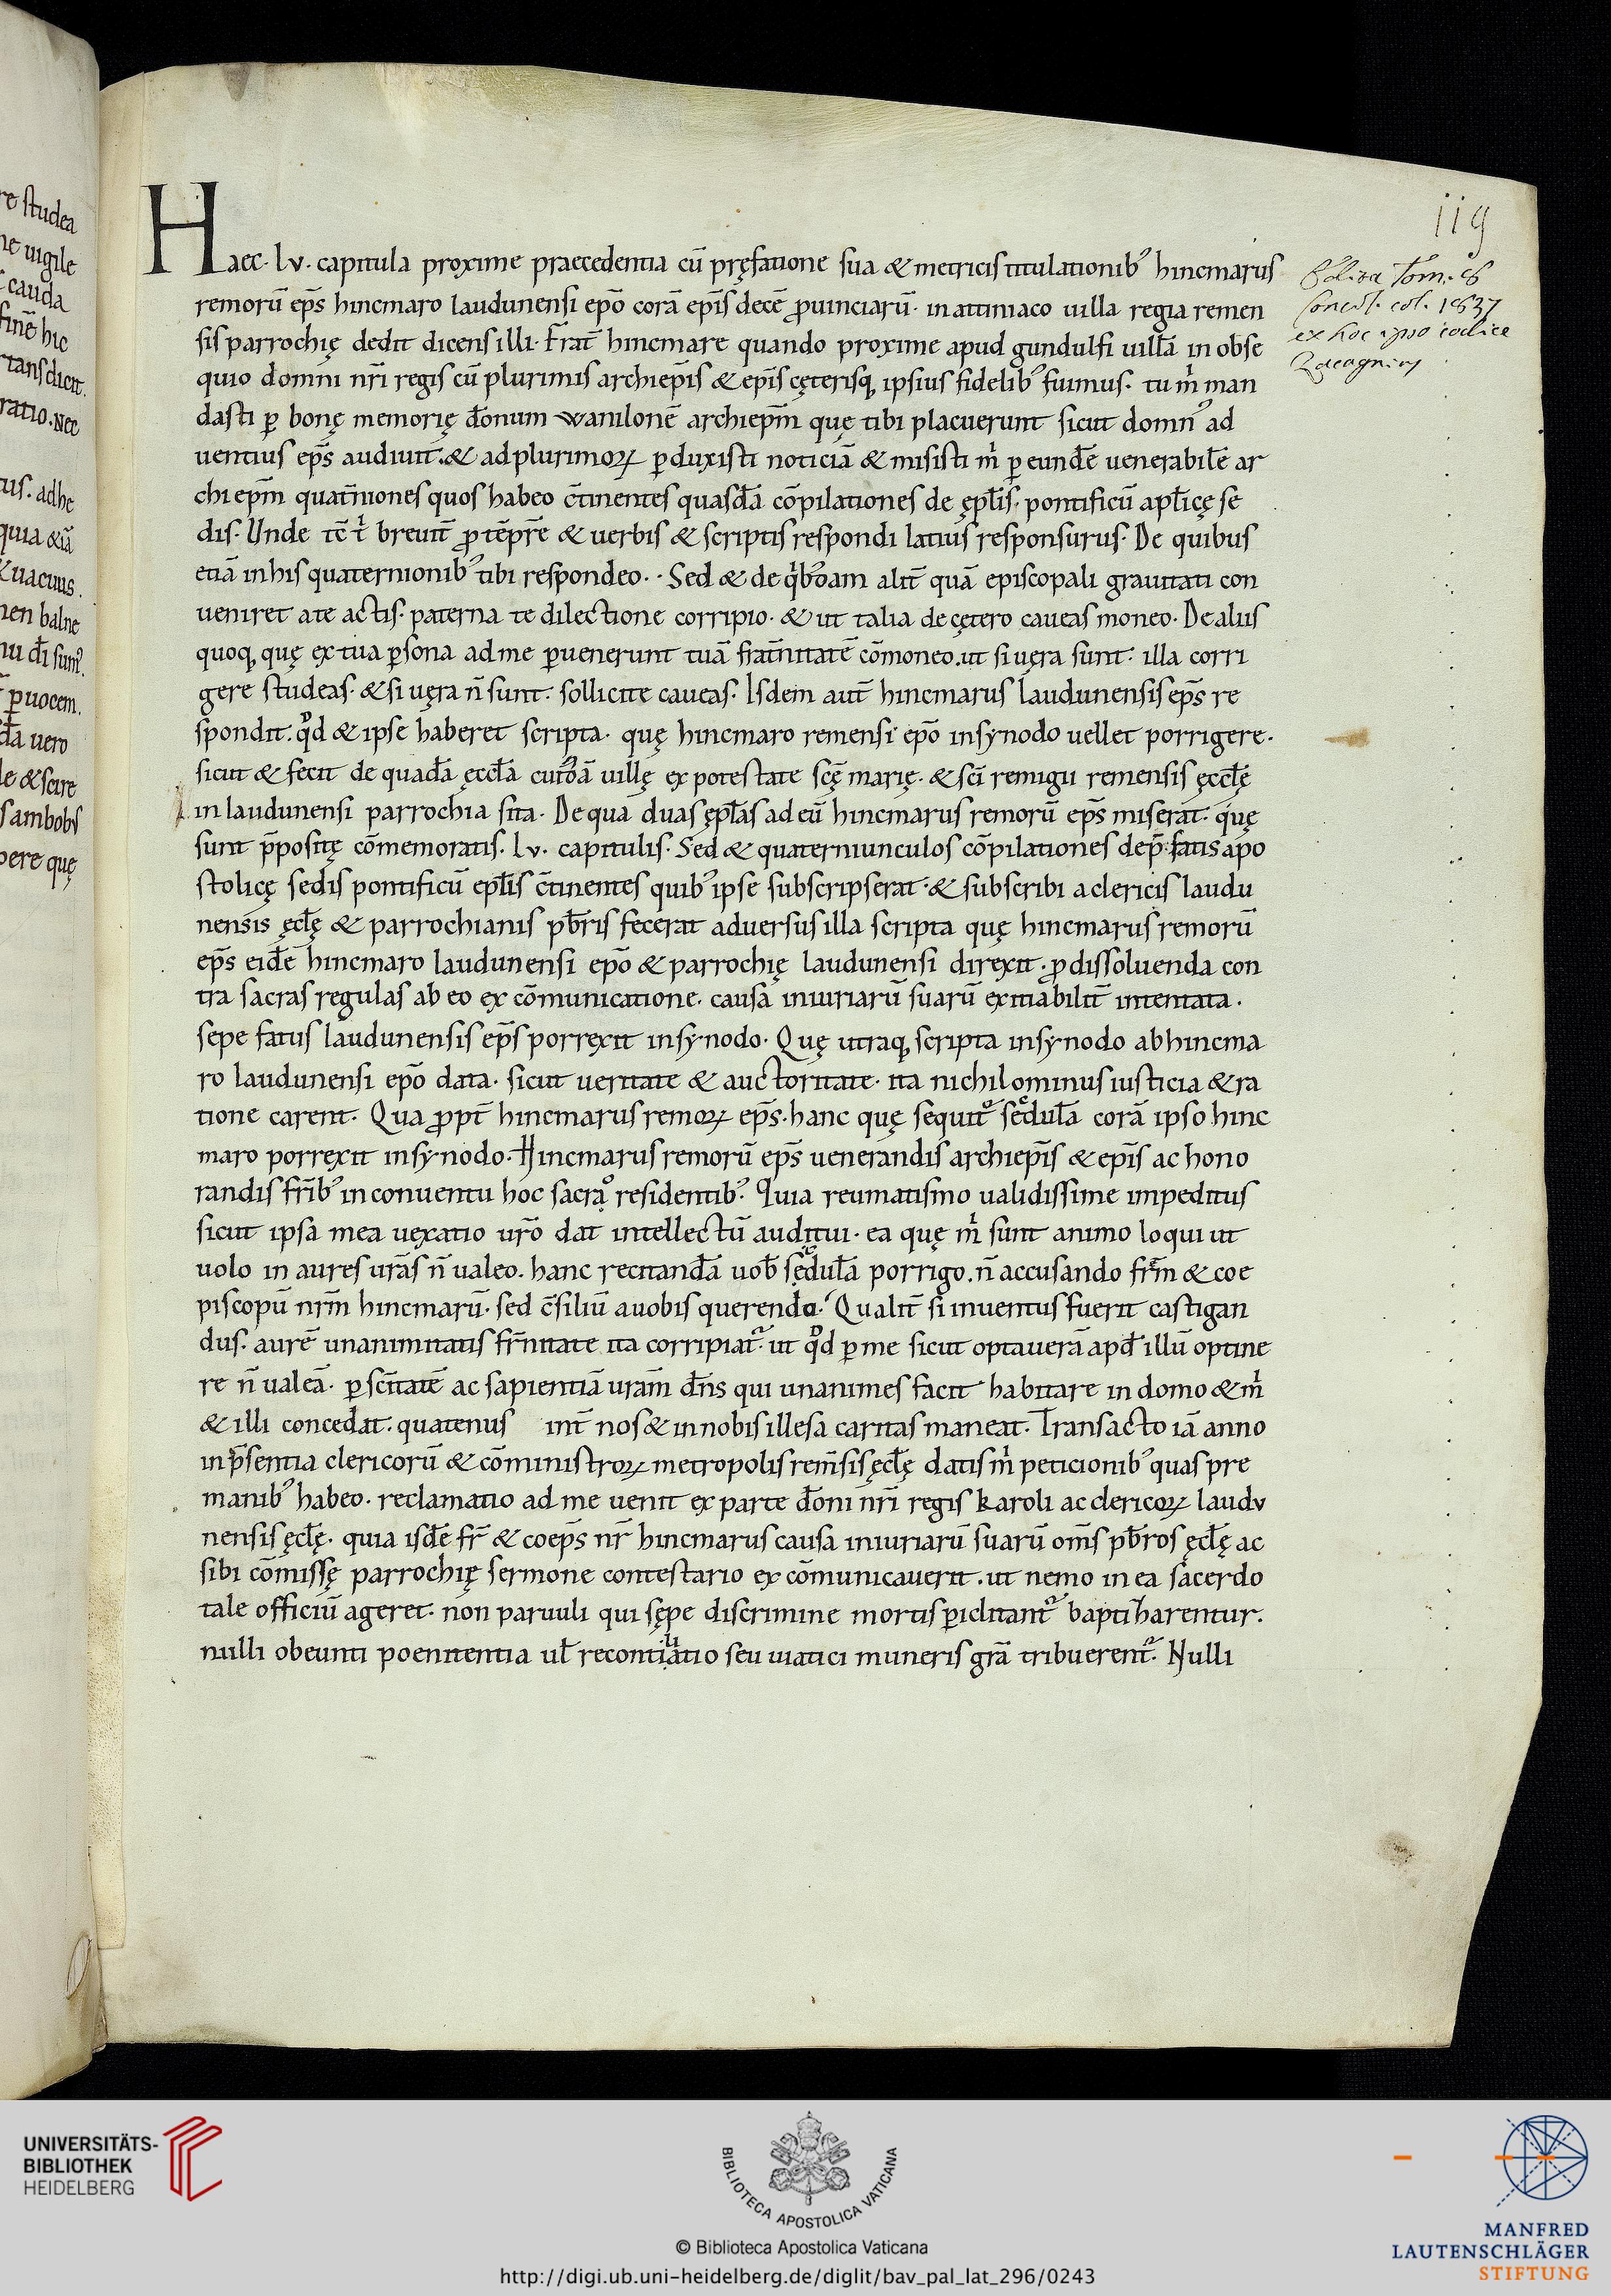 119
Haec. lv. capitula proxime praecedentia cū pręfatione sua & metricis titulationib' hincmarus
remorū ep̄s hincmaro laudunensi ep̄o corā ep̄is decē ꝓuinciarū. in attiniaco uilla regia remen
sis parrochię dedit dicens illi. Frat̄ hincmare quando proxime apud gundulfi uillā in obse
quio domini nr̄i regis cū plurimis archiep̄is & ep̄is cęterisq; ipsius fidelib' fuimus. tu m̊ man
dasti ꝑ bonę memorię dōnum wanilonē archiep̄m quę tibi placuerunt sicut domn' ad
uentius ep̄s audiuit. & ad plurimoꝝ ꝑduxisti noticiā & misisti m̊ ꝑ eundē uenerabilē ar
chiep̄m quat̄niones quos habeo c̄tinentes quasdā cōpilationes de ępl̄is. pontificū apl̄icę se
dis. Unde tc̄ t̊ breuit̄ ꝓ tēpr̄e & uerbis & scriptis respondi latius responsurus. De quibus
etiā in his quaternionib' tibi respondeo. Sed & de q̊b'dam alit̄ quā episcopali grauitati con
ueniret a te actis. paterna te dilectione corripio. & ut talia de cętero caueas moneo. De aliis
quoq; quę ex tua ꝑsona ad me ꝑuenerunt tuā frat̄nitatē cōmoneo. ut si uęra sunt. illa corri
gere studeas. & si uęra n̄ sunt. sollicite caueas. Isdem aut̄ hincmarus laudunensis ep̄s re
spondit. qd̊ & ipse haberet scripta. quę hincmaro remensi ep̄o in synodo uellet porrigere.
sicut & fecit de quadā ęccl̄a cuiꝰdā uillę ex potestate scę̄ marię. & sc̄i remigii remensis ęccl̄ę
in laudunensi parrochia sita. De qua duas ępl̄as ad eū hincmarus remorū ep̄s miserat. quę
sunt p̄positę cōmemoratis. lv. capitulis. Sed & quaterniunculos cōpilationes de p̄fatis apo
stolicę sedis pontificū epl̄is c̄tinentes quib' ipse subscripserat. & subscribi a clericis laudu
nensis ęcl̄ę & parrochianis pb̄ris fecerat aduersus illa scripta quę hincmarus remorū
ep̄s eidē hincmaro laudunensi ep̄o & parrochię laudunensi direxit. ꝓ dissoluenda con
tra sacras regulas ab eo excōmunicatione. causa iniuriarū suarū exitiabilit̄ intentata.
sepe fatus laudunensis ep̄s porręxit in synodo. Quę utraq; scripta in synodo ab hincma
ro laudunensi ep̄o data. sicut ueritate & auctoritate. ita nichilominus iusticia & ra
tione carent. Qua ꝓpt̄ hincmarus remoꝝ ep̄s. hanc quę sequit᷑ sędulā corā ipso hinc
maro porręxit in synodo. Hincmarus remorū ep̄s uenerandis archiep̄is & ep̄is ac hono
randis fr̄ib' in conuentu hoc sacro residentib'. Quia reumatismo ualidissime impeditus
sicut ipsa mea uexatio ur̄o dat intellectū auditui. ea quę m̊ sunt animo loqui ut
uolo in aures ur̄as n̄ ualeo. hanc recitandā uob̄ sędulā porrigo. n̄ accusando fr̄m & coe
piscopū nr̄m hincmarū. sed c̄siliū a uobis querendo. Qualit̄ si inuentus fuerit castigan
dus. aurē unanimitatis fr̄nitate ita corripiat᷑. ut qd̊ ꝑ me sicut optauerā apd̄ illū optine
re n̄ ualeā. ꝑ sc̄itatē ac sapientiā urām dn̄s qui unanimes facit habitare in domo & m̊
& illi concedat. quatenus int̄ nos & in nobis illesa caritas maneat. Transacto iā anno
in p̄sentia clericorū & cōministroꝝ metropolis rem̄sis ęcl̄ę datis m̊ peticionib' quas pre
manib' habeo. reclamatio ad me uenit ex parte dōni nr̄i regis karoli ac clericoꝝ laudv
nensis ęcl̄ę. quia isdē fr̄ & coep̄s nr̄ hincmarus causa iniuriarū suarū om̄s pb̄ros ęcl̄ę ac
sibi cōmissę parrochię sermone contestario excōmunicauerit. ut nemo in ea sacerdo
tale officiū ageret. non paruuli qui sępe discrimine mortis ꝑiclitant᷑ baptizarentur.
nulli obeunti poenitentia ul̄ reconciliatio seu uiatici muneris grā tribuerent᷑. Nulli
ex hoc ipso codice
UNIVERSITÄTS-
BIBLIOTHEK
HEIDELBERG
BIBLIOTECA APOSTOLICA VATICANA
© Biblioteca Apostolica Vaticana
http://digi.ub.uni-heidelberg.de/diglit/bav_pal_lat_296/0243
MANFRED
LAUTENSCHLÄGER
STIFTUNG